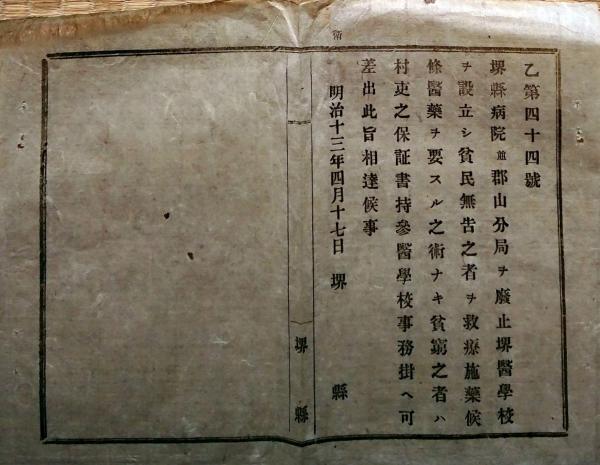 乙第四十四號
堺縣病院並郡山分局ヲ廢止堺醫學校
ヲ設立シ貧民無告之者ヲ救療施藥候
條醫藥ヲ要スル之術ナキ貧窮之者ハ
村吏之保証書持參醫學校事務掛ヘ可
差出此旨相達候事
明治十三年四月十七日 堺縣
堺縣